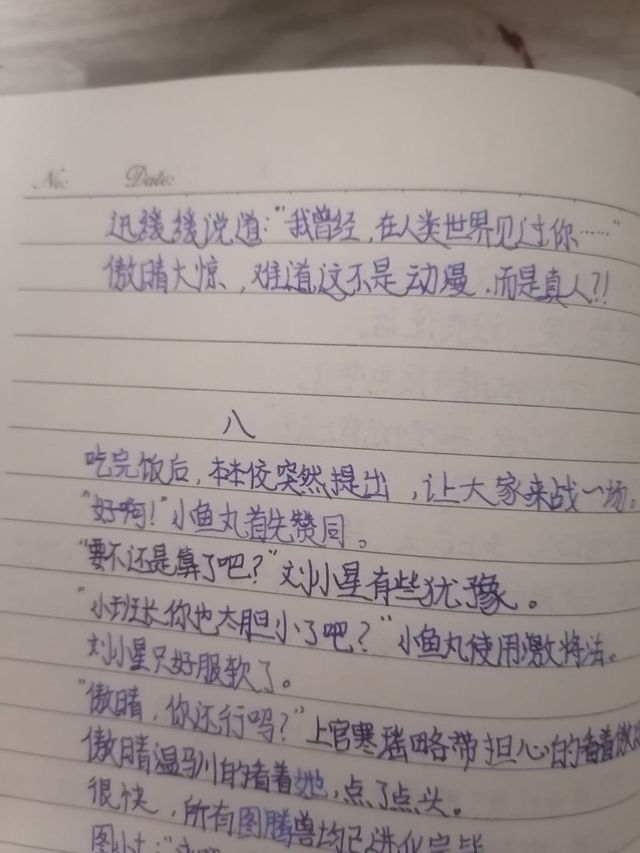 No:
Date:
迅缓缓说道：“我曾经，在人类世界见过你……”
傲晴大惊，难道这不是动漫，而是真人?!
八
吃完饭后，林佼突然提出，让大家来战一场。
“好啊！”小鱼丸首先赞同。
“要不还是算了吧？”刘小星有些犹豫。
“小班长你也太胆小了吧？”小鱼丸使用激将法。
刘小星只好服软了。
“傲晴，你还行吗？”上官寒瑶略带担心的看着傲
傲晴温驯的看着她，点了点头。
很快，所有图腾兽均已进化完毕